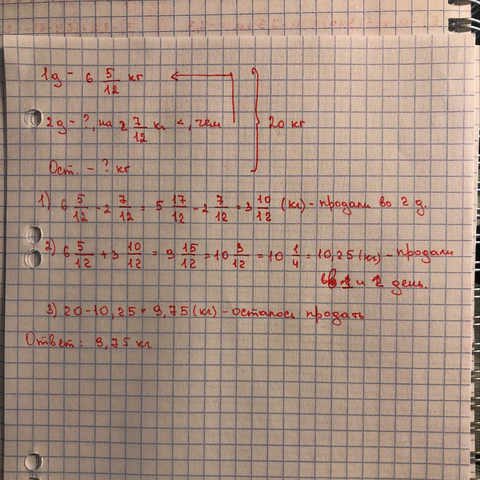 1д - 6 5/12 кг
2д - ?, на 2 7/12 кг <, чем } 20 кг
Ост. - ? кг
1) 6 5/12 - 2 7/12 = 5 17/12 - 2 7/12 = 3 10/12 (кг) - продали во 2 д.
2) 6 5/12 + 3 10/12 = 9 15/12 = 10 3/12 = 10 1/4 = 10,25 (кг) - продали
в 1 и 2 день.
3) 20 - 10,25 = 9,75 (кг) - осталось продать
Ответ: 9,75 кг